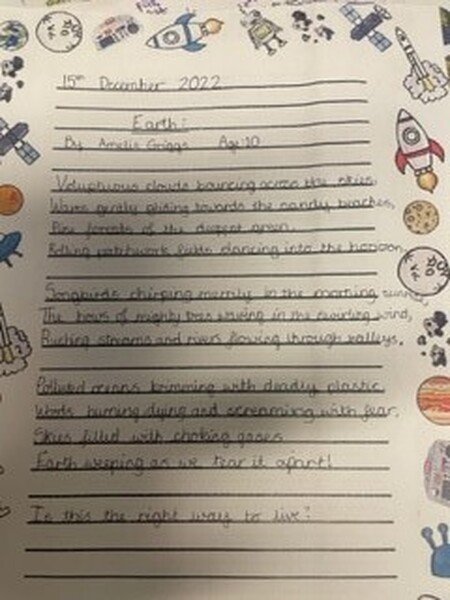 15th December 2022
Earth!
By Amelia Griggs Age: 10
Voluptuous clouds bouncing across the skies,
Waves gently gliding towards the sandy beaches,
Pine forests of the deepest green,
Rolling patchwork fields dancing into the horizon.
Songbirds chirping merrily in the morning sunrise,
The bows of mighty trees waving in the swirling wind,
Rushing streams and rivers flowing through valleys.
Polluted oceans brimming with deadly plastic,
Woods burning dying and screaming with fear,
Skies filled with choking gases
Earth weeping as we tear it apart!
Is this the right way to live?